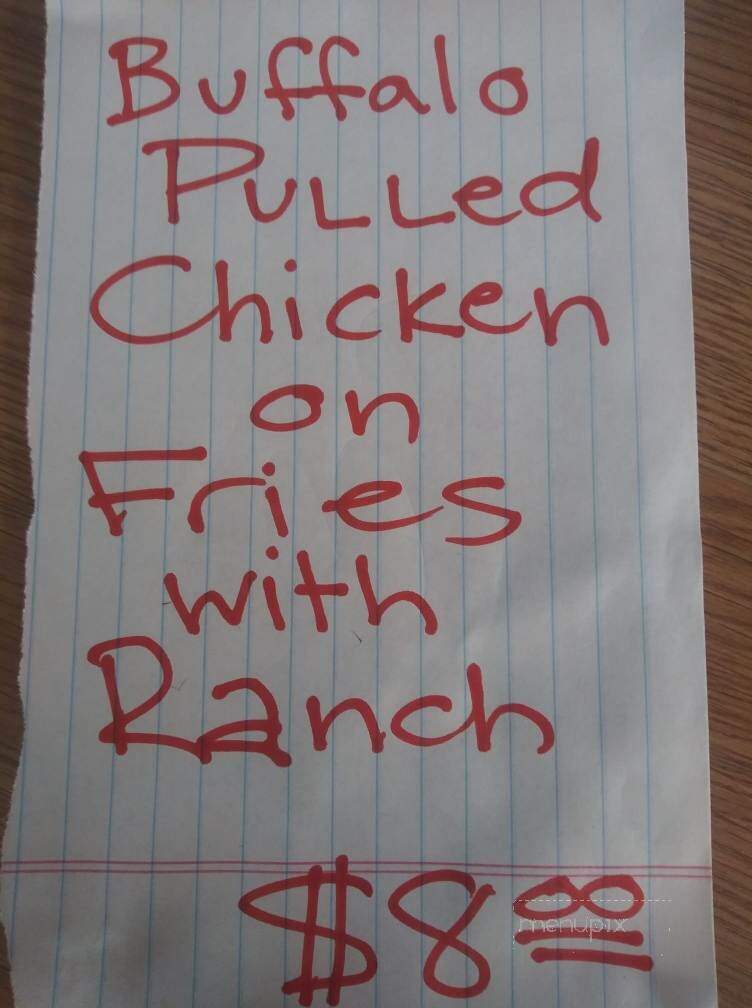 Buffalo
PULLed
Chicken
on
Fries
with
Ranch
$8
menupix